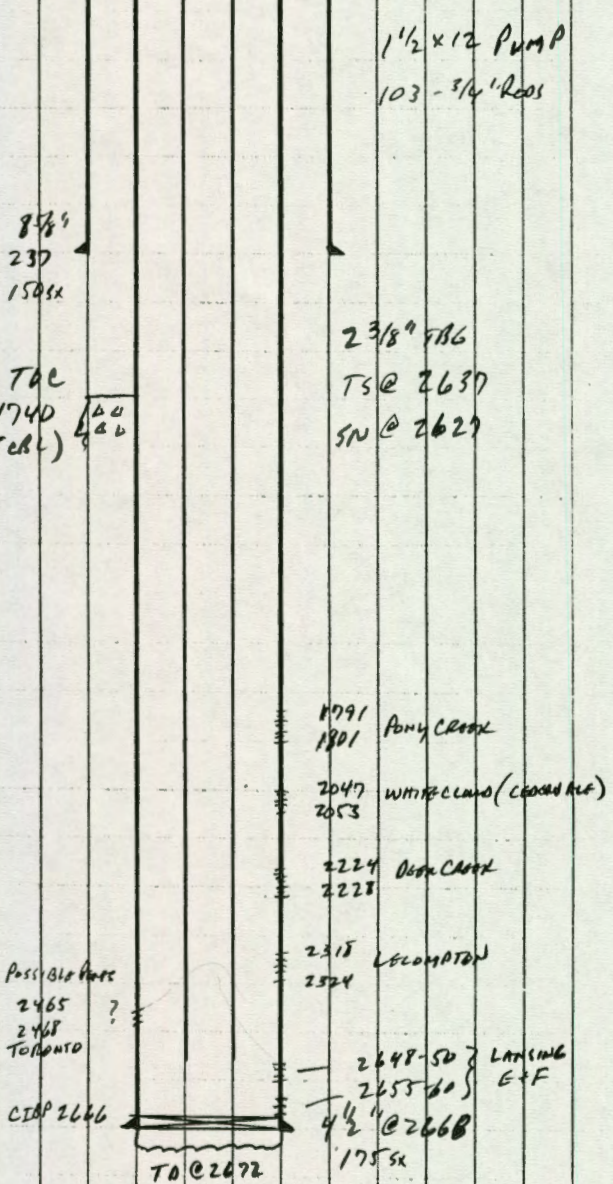 1 1/2 x 12 PUMP
103 - 3/4" RODS
8 5/8"
237
150 sx
2 3/8" TBG
TS @ 2637
SN @ 2627
TOC
1740
(CBL)
1791
1801 PONY CREEK
2047 WHITE CLOUD (CEDARVALE)
2053
2224 DEER CREEK
2228
2318 LECOMPTON
2324
POSSIBLE PERFS
2465 ?
2468
TORONTO
2648-50 } LANSING
2655-60 } E+F
CIBP 2666
4 1/2" @ 2668
175 sx
TD @ 2672